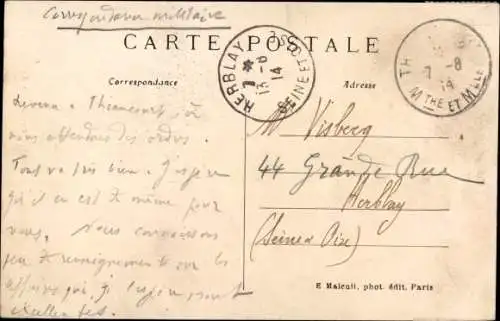 Correspondance militaire
CARTE POSTALE
HERBLAY
7 *
13 -8
14
SEINE ET OISE
TH
7 -8
14
MTHE ET MELLE
Correspondance
Adresse
à Thiaucourt, où
nous attendons des ordres.
Tout va très bien. J'espère
qu'il en est de même pour
vous. Nous connaissons
peu de renseignements sur les
qui, j'espère sont
excellentes.
Mr Visberg
44 Grande Rue
Herblay
(Seine & Oise)
E Maleuil, phot. édit. Paris